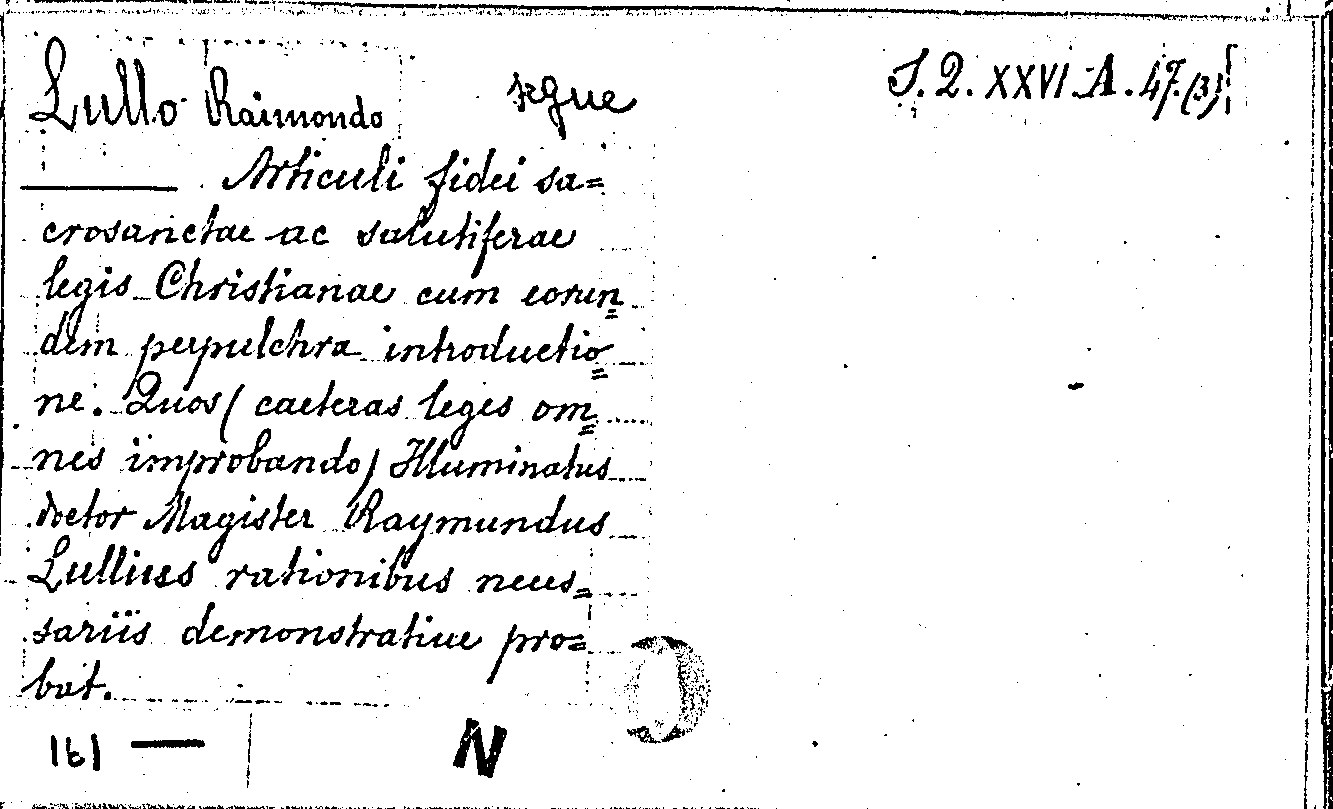 Lullo Raimondo segue S.Q.XXVI.A.47.(3)
Articuli fidei sa=
crosanctae ac salutiferae
legis Christianae cum eorun=
dem perpulchra introductio=
ne. Quos (caeteras leges om=
nes improbando) Illuminatus
doctor Magister Raymundus
Lullius rationibus neces=
sariis demonstrative pro=
bat.
N